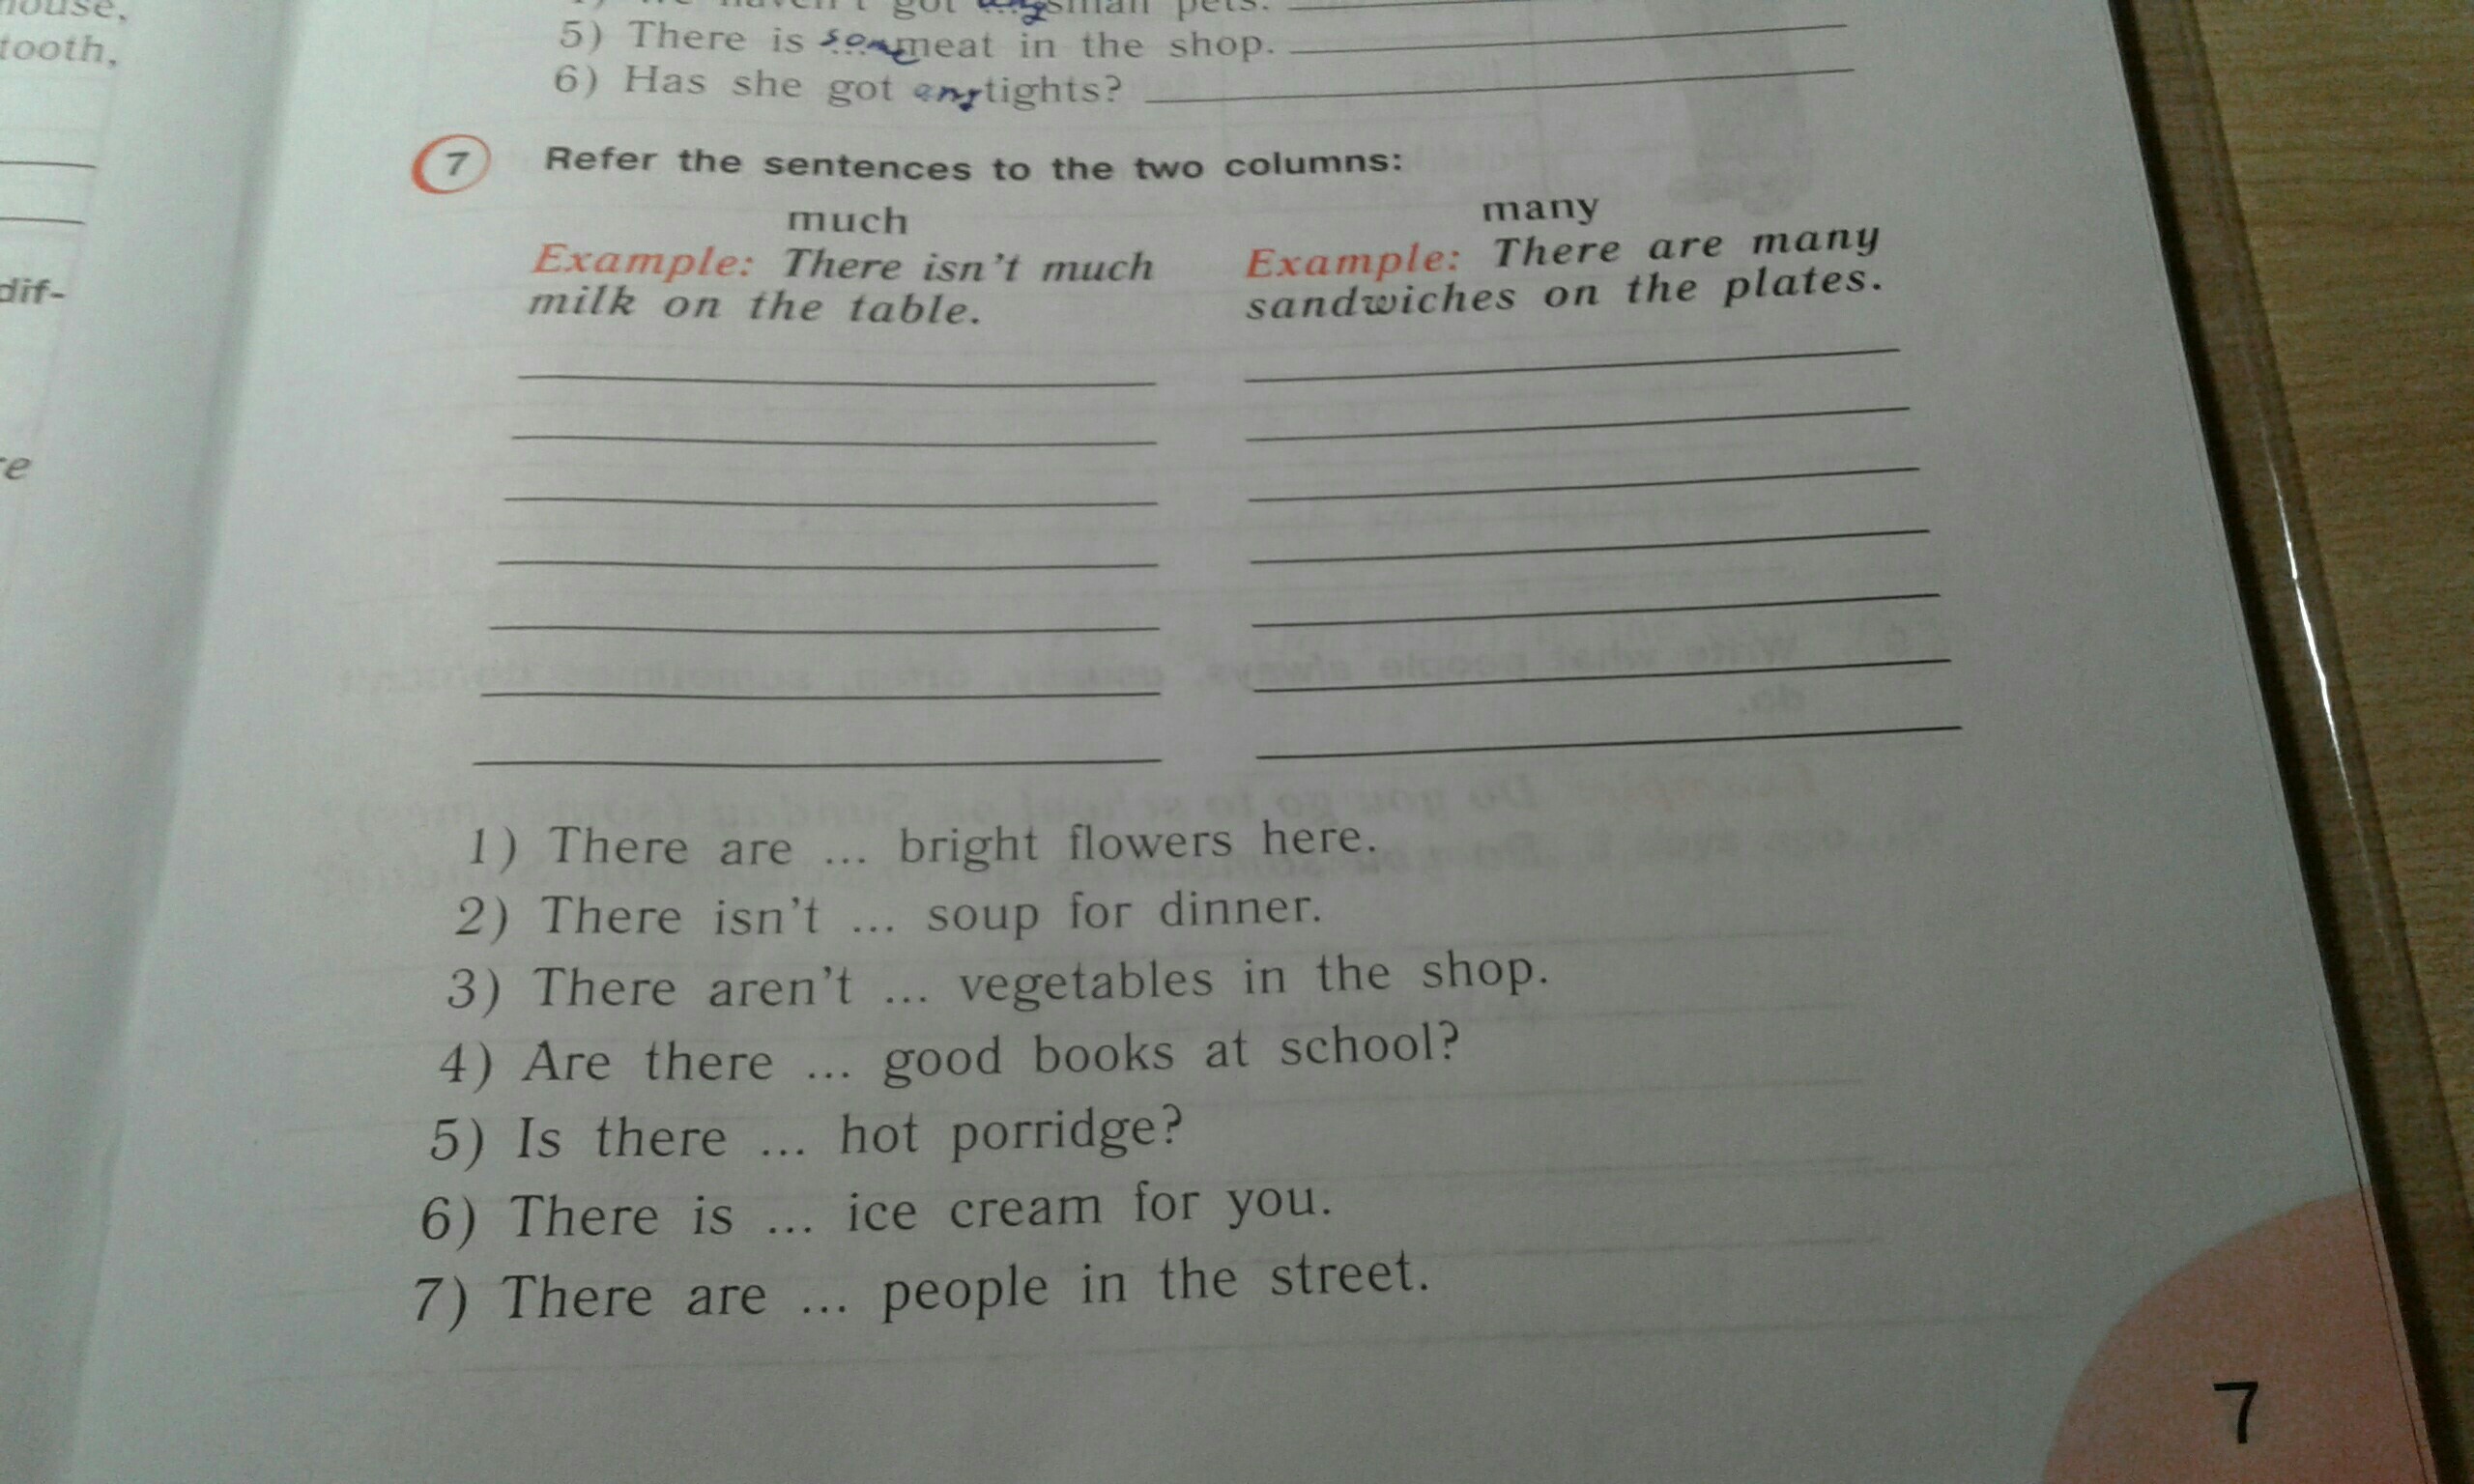 house,
tooth,
dif-
e
got any small pets.
5) There is some meat in the shop.
6) Has she got any tights?
7 Refer the sentences to the two columns:
much
many
Example: There isn't much
milk on the table.
Example: There are many
sandwiches on the plates.
1) There are ... bright flowers here.
2) There isn't ... soup for dinner.
3) There aren't ... vegetables in the shop.
4) Are there ... good books at school?
5) Is there ... hot porridge?
6) There is ... ice cream for you.
7) There are ... people in the street.
7